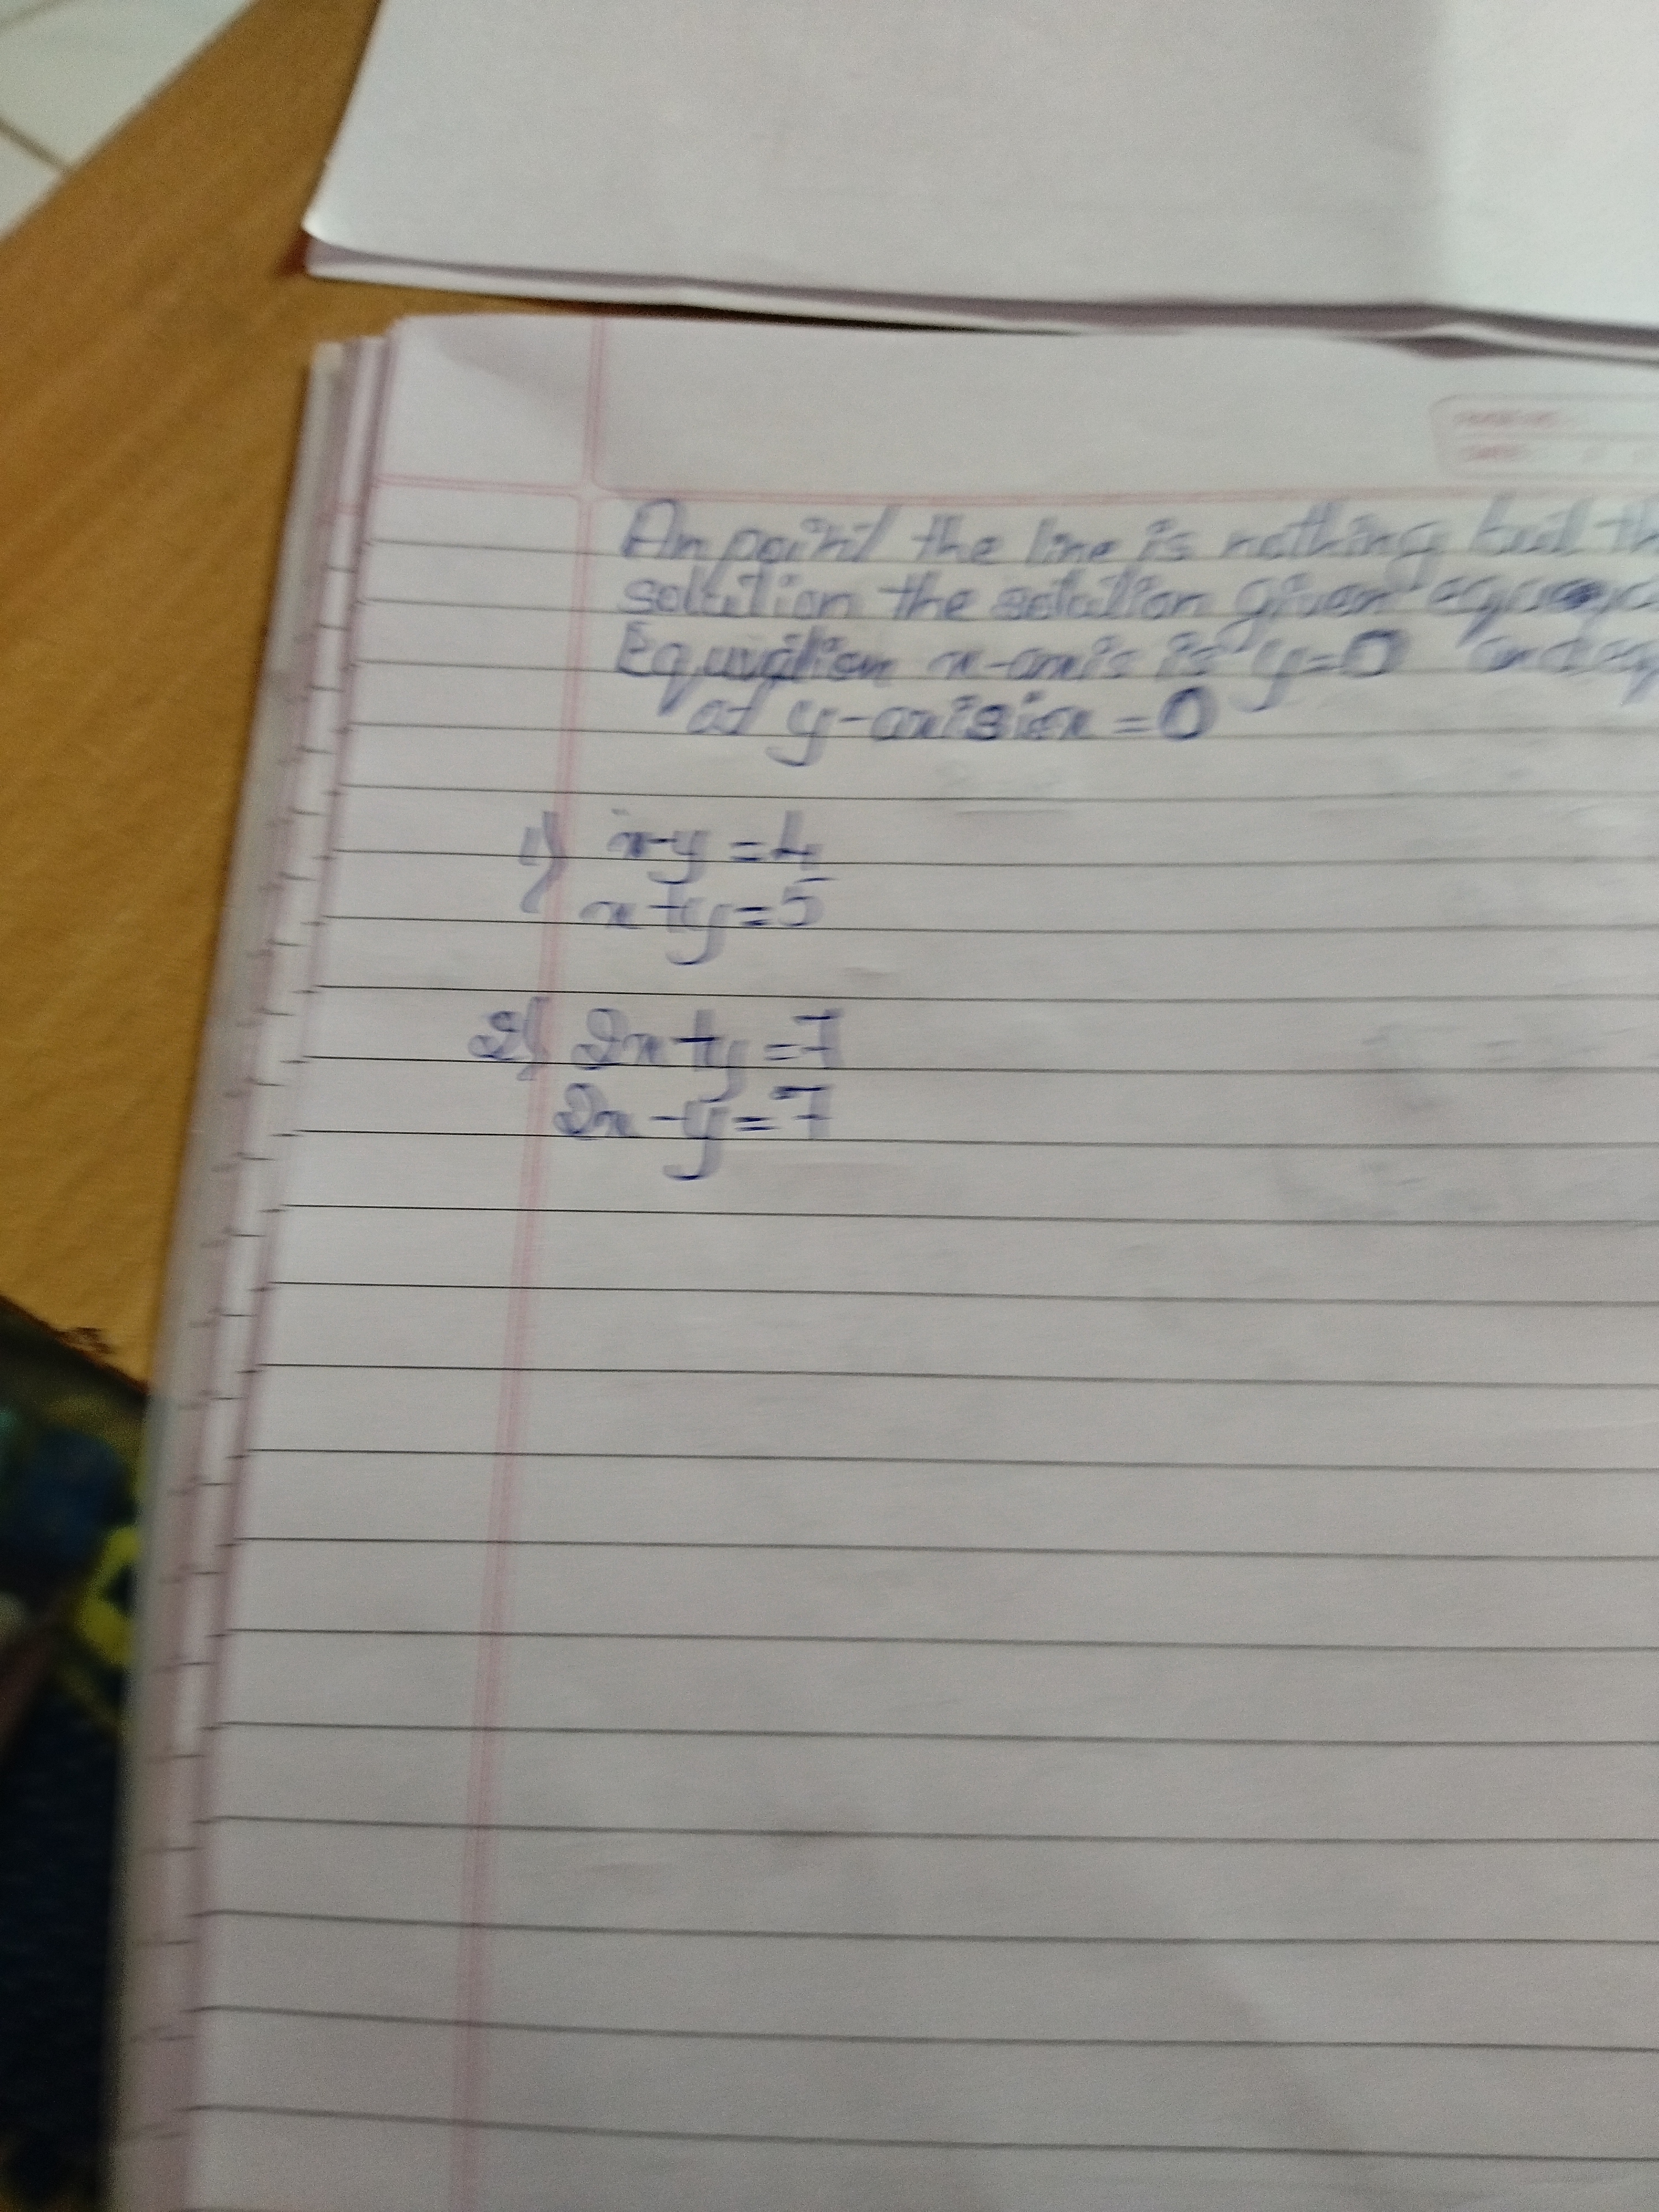 An point the line is nothing but th
solution the solution given
Equation x-axis is y=0
at y-axis is x=0
1) x-y=4
x+y=5
2) 2x+y=7
2x-y=7